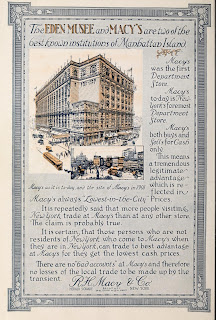 The EDEN MUSEE and MACY'S are two of the
best known institutions of Manhattan Island
Macy's
was the first
Department
Store.
Macy's
to-day is New
York's foremost
Department
Store.
Macy's
both buys and
Sells for Cash
only.
This means
a tremendous
legitimate
advantage~
which is re-
flected in
Macy's as it is to-day and the site of Macy's in
Macy's always Lowest-in-the-City Prices.
It is repeatedly said that more people visiting
New York, trade at Macy's than at any other store.
The claim is probably true.
It is certain, that those persons who are not
residents of New York, who come to Macy's when
they are in New York, can trade to best advantage
at Macy's for they get the lowest cash prices.
There are no "bad accounts" at Macy's and therefore
no losses of the local trade to be made up by the
transient.
R.H. Macy & Co.
NEW YORK